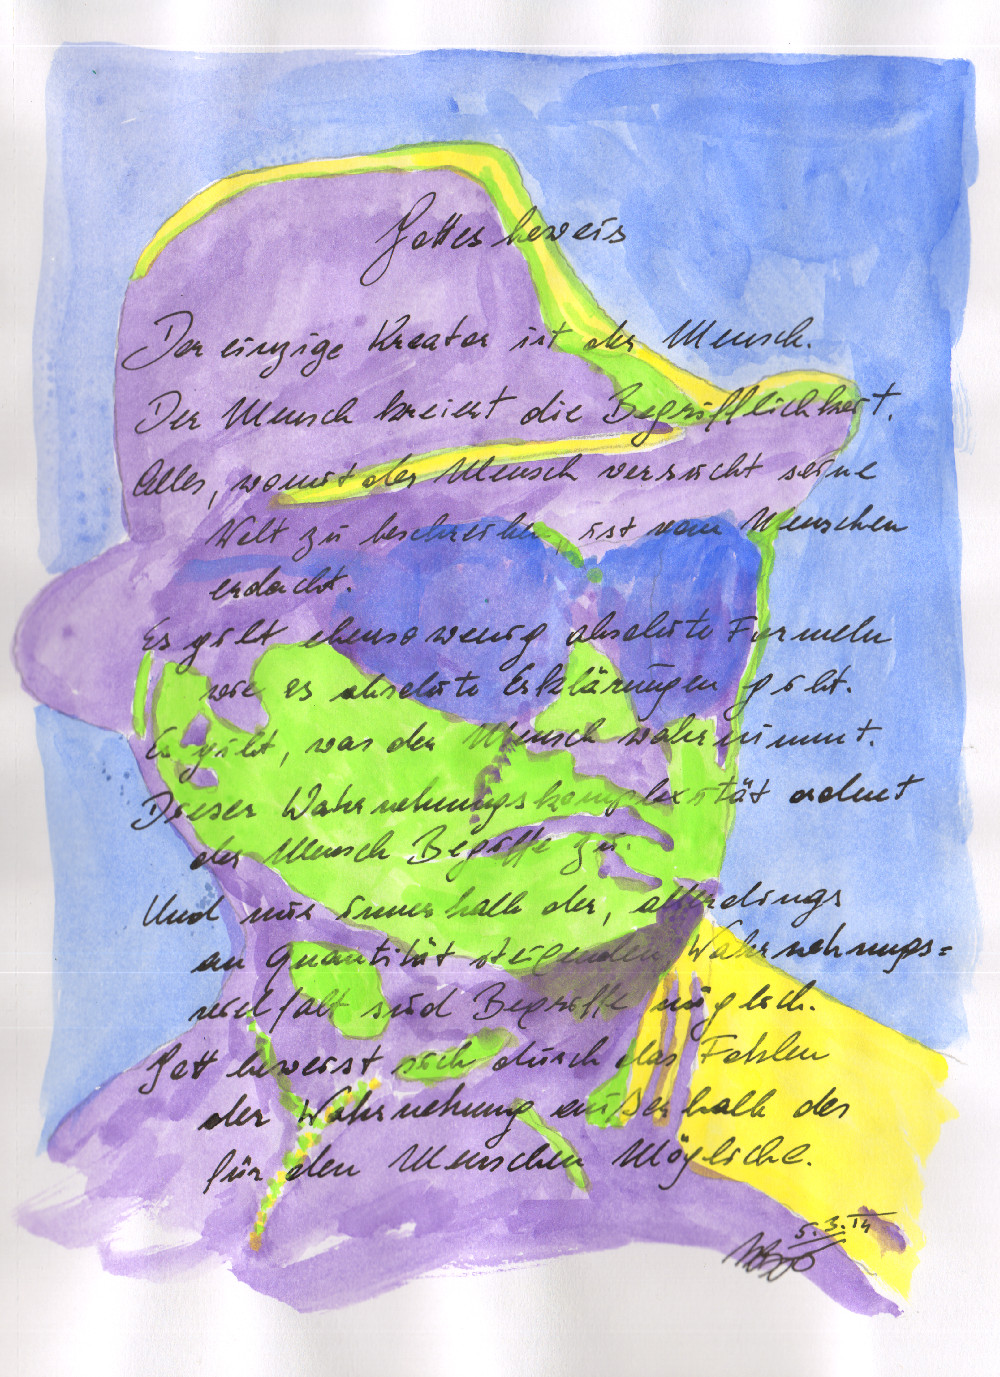 Gottesbeweis
Der einzige Kreator ist der Mensch.
Der Mensch kreiert die Begrifflichkeit.
Alles, womit der Mensch versucht seine
Welt zu beschreiben, ist vom Menschen
erdacht.
Es gibt ebensowenig absolute Formeln
wie es absolute Erklärungen gibt.
Es gibt, was der Mensch wahrnimmt.
Dieser Wahrnehmungskomplexität ordnet
der Mensch Begriffe zu.
Und nur innerhalb der, allerdings
an Quantität steigenden Wahrnehmungs=
vielfalt sind Begriffe möglich.
Gott beweist sich durch das Fehlen
der Wahrnehmung außerhalb des
für den Menschen Mögliche.
5.3.14